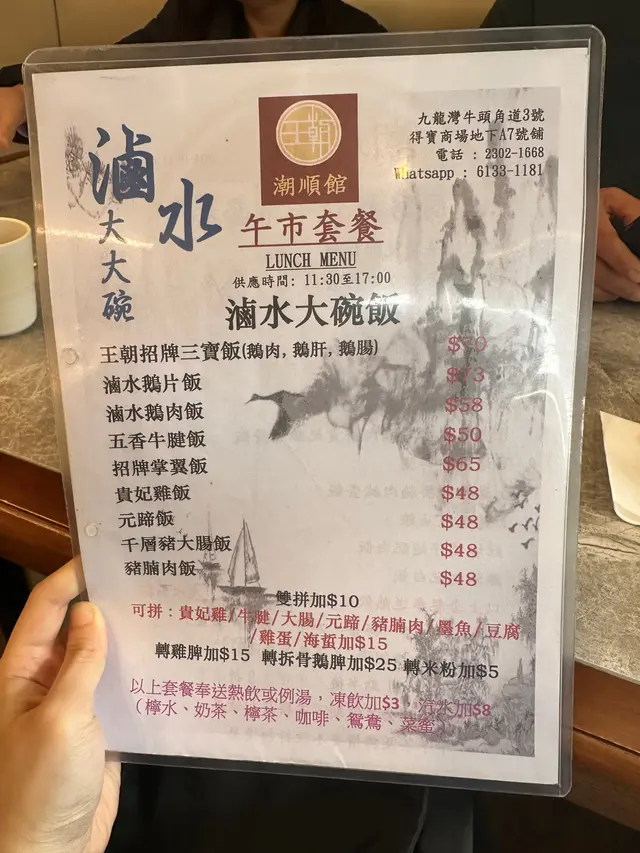 滷水
大大碗
王朝
潮順館
九龍灣牛頭角道3號
得寶商場地下A7號舖
電話 : 2302-1668
Whatsapp : 6133-1181
午市套餐
LUNCH MENU
供應時間: 11:30至17:00
滷水大碗飯
王朝招牌三寶飯(鵝肉, 鵝肝, 鵝腸) $70
滷水鵝片飯 $73
滷水鵝肉飯 $58
五香牛腱飯 $50
招牌掌翼飯 $65
貴妃雞飯 $48
元蹄飯 $48
千層豬大腸飯 $48
豬腩肉飯 $48
雙拼加$10
可拼:貴妃雞/牛腱/大腸/元蹄/豬腩肉/墨魚/豆腐
/雞蛋/海蜇加$15
轉雞脾加$15 轉拆骨鵝脾加$25 轉米粉加$5
以上套餐奉送熱飲或例湯，凍飲加$3，汽水加$8
（檸水、奶茶、檸茶、咖啡、鴛鴦、菜蜜）